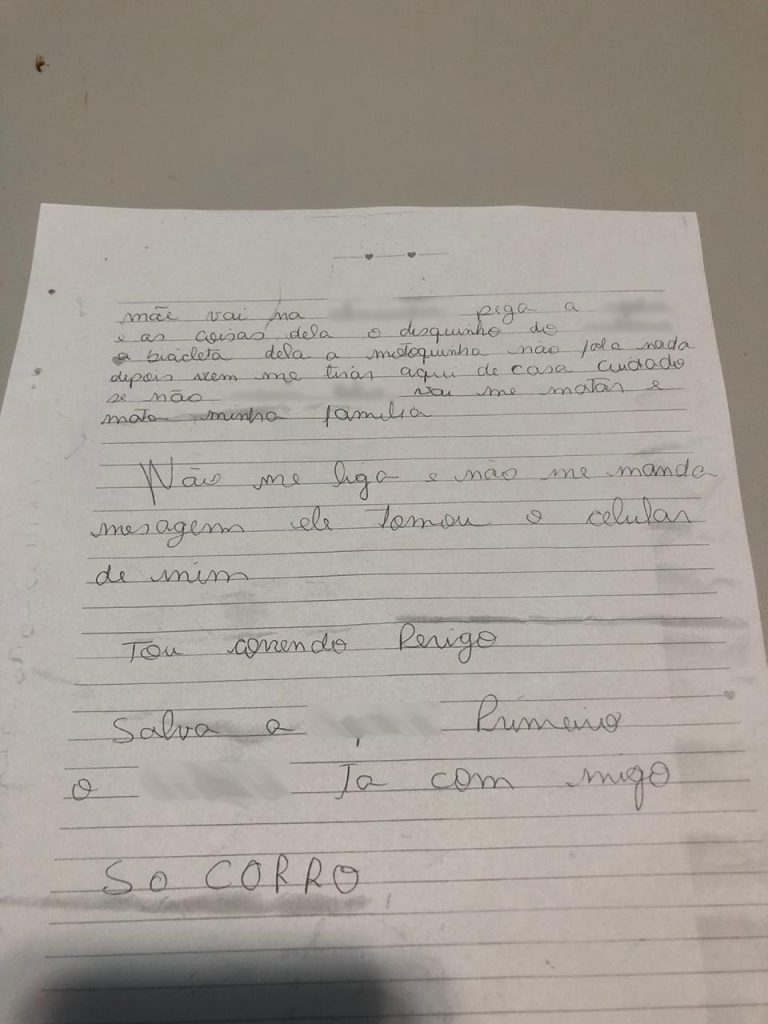 mãe vai na pega a
e as coisas dela o disquinho do
a bicicleta dela a motoquinha não fala nada
depois vem me tirar aqui de casa cuidado
se não vai me matar e
mata minha familia
Não me liga e não me manda
mesagem ele Tomou o celular
de mim
Tou correndo Perigo
Salva a Primeiro
o Ta com migo
SO CORRO